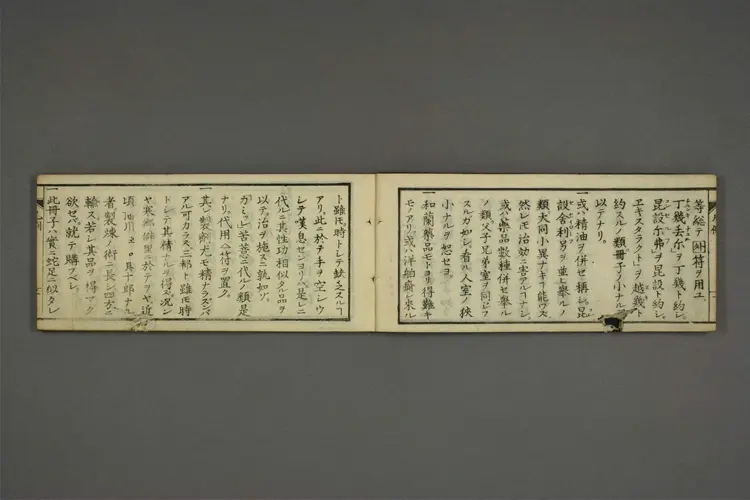 等総テ 符ヲ用エ
丁幾去尓ヲ丁幾ト約シ
昆設尓弗ヲ昆設ト約シ
エキスタラクト」ヲ越幾ト
約スルノ類冊子ノ小ナルヲ
以テナリ。
一或ハ精油ヲ併セ稱シ昆
設舎利別ヲ並ヘ擧ルノ
類大同小異ナキヿ能ハズ
然レ𪜈治効ニ害アルヿナシ
或ハ藥品数種併セ擧ル
ノ類父子兄弟室ヲ同ジフ
スルガ如シ看ル人室ノ狭
小ナルヲ恕セヨ。
一和蘭藥品モトヨリ得難キ
モノアリ或ハ洋舶齎シ来ル
ト雖𪜈時トシテ缺乏スルヿ
アリ此ニ於テ手ヲ空シウ
シテ嘆息センヨリハ是レニ
代ルニ其性功相似タル品ヲ
以テ治ヲ施スニ孰如ゾ。
カミツレ」苦薏ニ代ルノ類是
ナリ代用ハ符ヲ置ク。
一其ノ製劑尤モ精ナラズンバ
アル可カラズ三都ト雖𪜈時
トシテ其精ナルヲ得ズ況ン
ヤ寒郷僻里ニ於テヲヤ近
頃 川 十郎ナル
者製煉ノ術ニ長シ四方ニ
輸ス若シ其品ヲ得マク
欲セバ就テ購フベシ
一此冊子ハ實ニ蛇足ニ似タレ